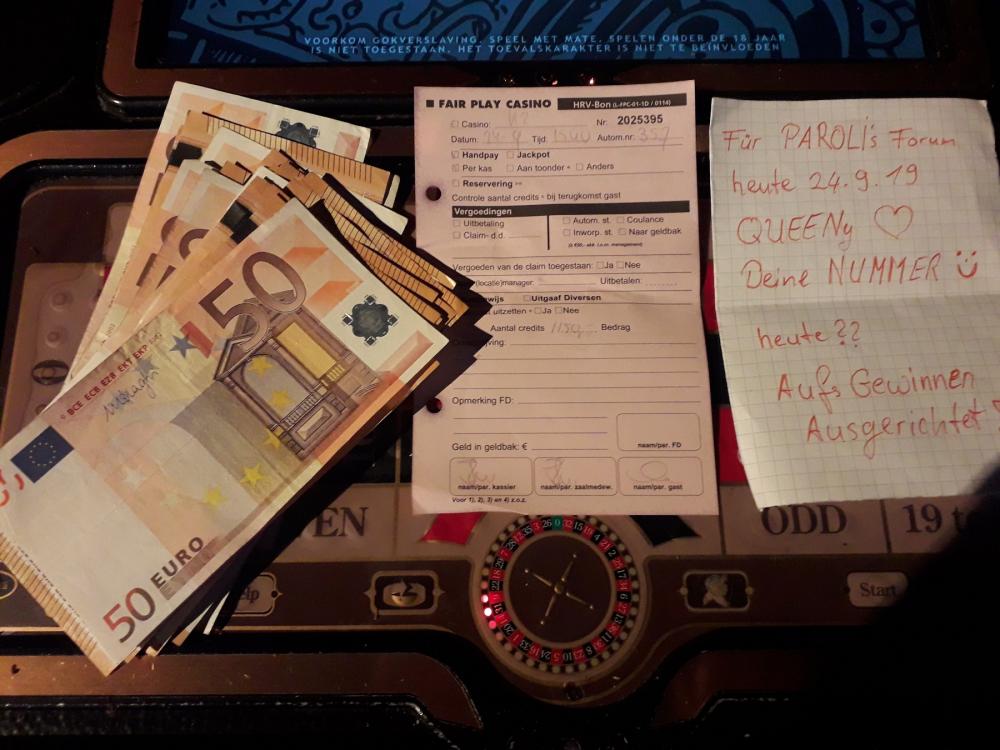 VOORKOM GOKVERSLAVING. SPEEL MET MATE. SPELEN ONDER DE 18 JAAR
IS NIET TOEGESTAAN. HET TOEVALSKARAKTER IS NIET TE BEINVLOEDEN
FAIR PLAY CASINO HRV-Bon (L-FPC-01-1D / 0114)
Casino: Nr. 2025395
Datum: 24-9 Tijd: 1540 Autom.nr: 357
Handpay Jackpot
Per kas Aan toonder Anders
Reservering
Controle aantal credits bij terugkomst gast
Vergoedingen
Uitbetaling Autom. st. Coulance
Claim- d.d. Inworp. st. Naar geldbak
Vergoeden van de claim toegestaan: Ja Nee
(locatie)manager: Uitbetalen:
Uitgaaf Diversen
uitzetten Ja Nee
Aantal credits Bedrag
Opmerking FD:
naam/par. FD
Geld in geldbak: €
naam/par. kassier naam/par. zaalmedew. naam/par. gast
Voor 1), 2), 3) en 4) z.o.z.
Für PAROLI's Forum
heute 24.9.19
QUEENy ♡
Deine NUMMER
heute??
Aufs Gewinnen
Ausgerichtet!
50
BCE ECB EZB EKT EKP
50 EURO
VEN
ODD
19 to
Start